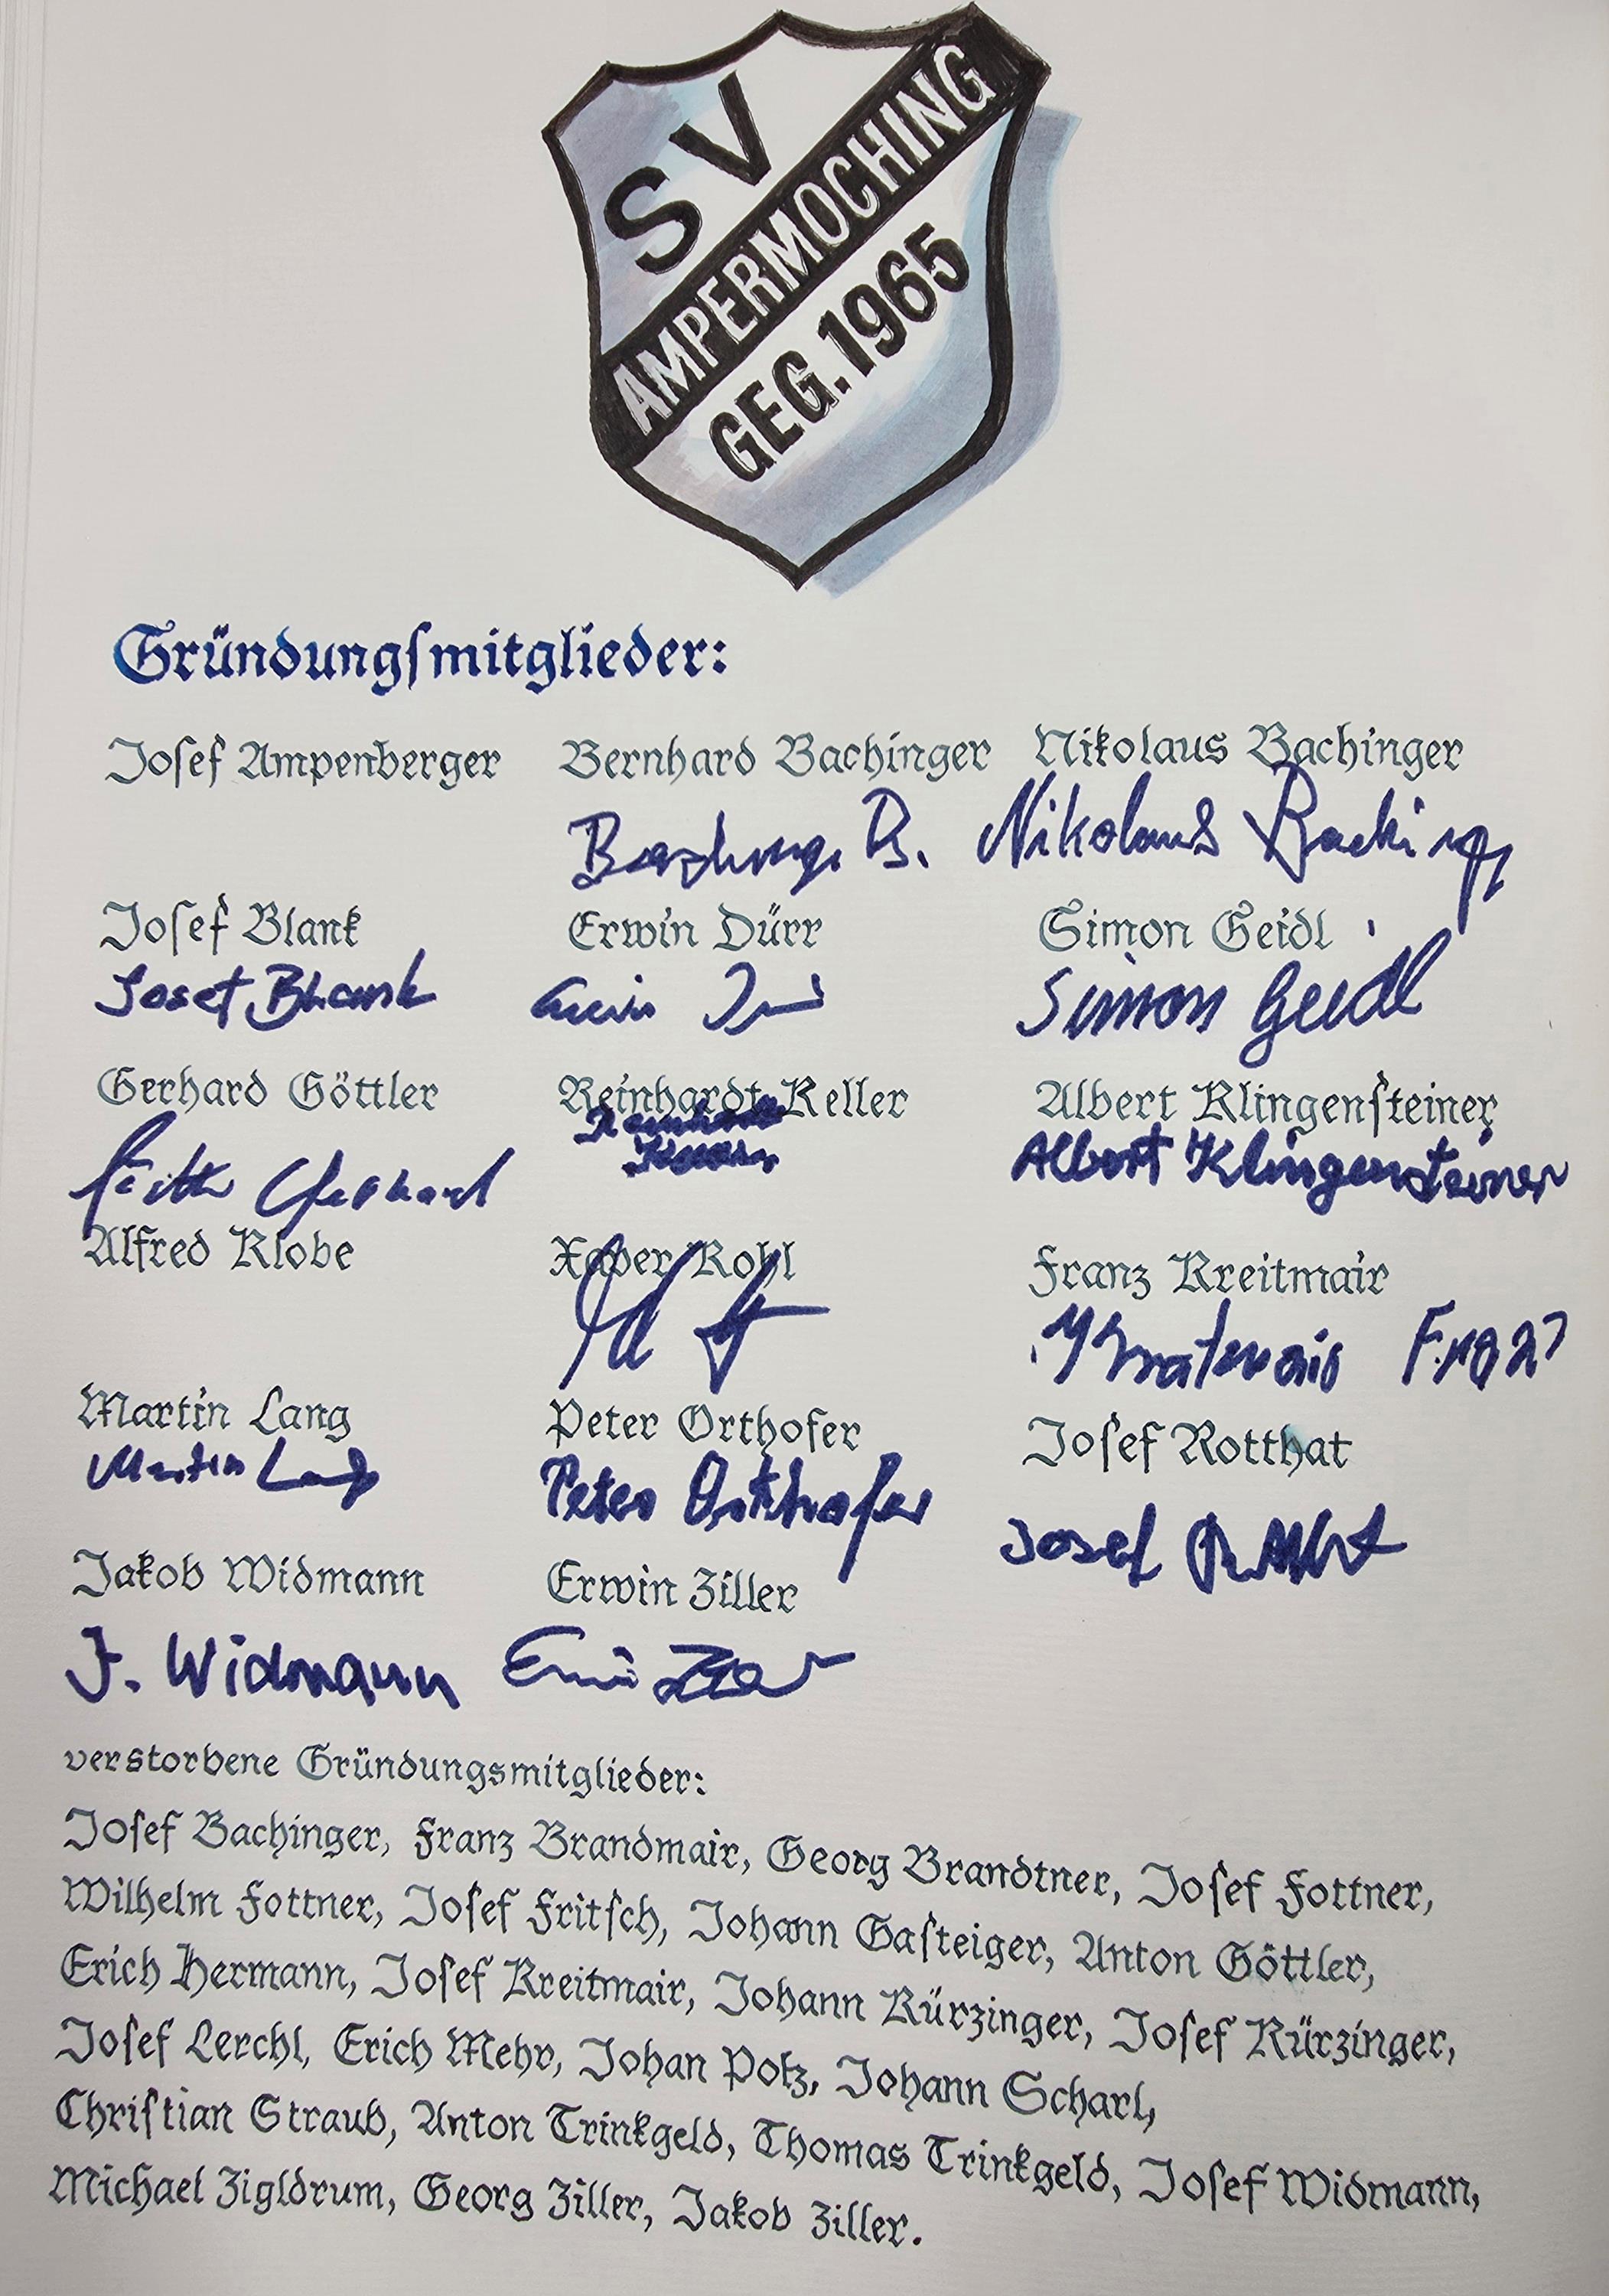 SV
AMPERMOCHING
GEG. 1965
Gründungſmitglieder:
Joſef Ampenberger Bernhard Bachinger Nikolaus Bachinger
B. Nikolaus Baching
Joſef Blank Erwin Dürr Simon Geidl
Josef Blank Erwin Simon Geidl
Gerhard Göttler Reinhardt Keller Albert Klingenſteiner
Gerhard Albert Klingensteiner
Alfred Klobe Xaver Kohl Franz Kreitmair
Martin Lang Peter Orthofer Joſef Rotthat
Martin Lang Peter Orthofer Josef
Jakob Widmann Erwin Ziller
J. Widmann Erwin
verstorbene Gründungsmitglieder:
Joſef Bachinger, Franz Brandmair, Georg Brandtner, Joſef Fottner,
Wilhelm Fottner, Joſef Fritſch, Johann Gaſteiger, Anton Göttler,
Erich Hermann, Joſef Kreitmair, Johann Kürzinger, Joſef Kürzinger,
Joſef Lerchl, Erich Mehr, Johan Potz, Johann Scharl,
Chriſtian Straub, Anton Trinkgeld, Thomas Trinkgeld, Joſef Widmann,
Michael Zigldrum, Georg Ziller, Jakob Ziller.